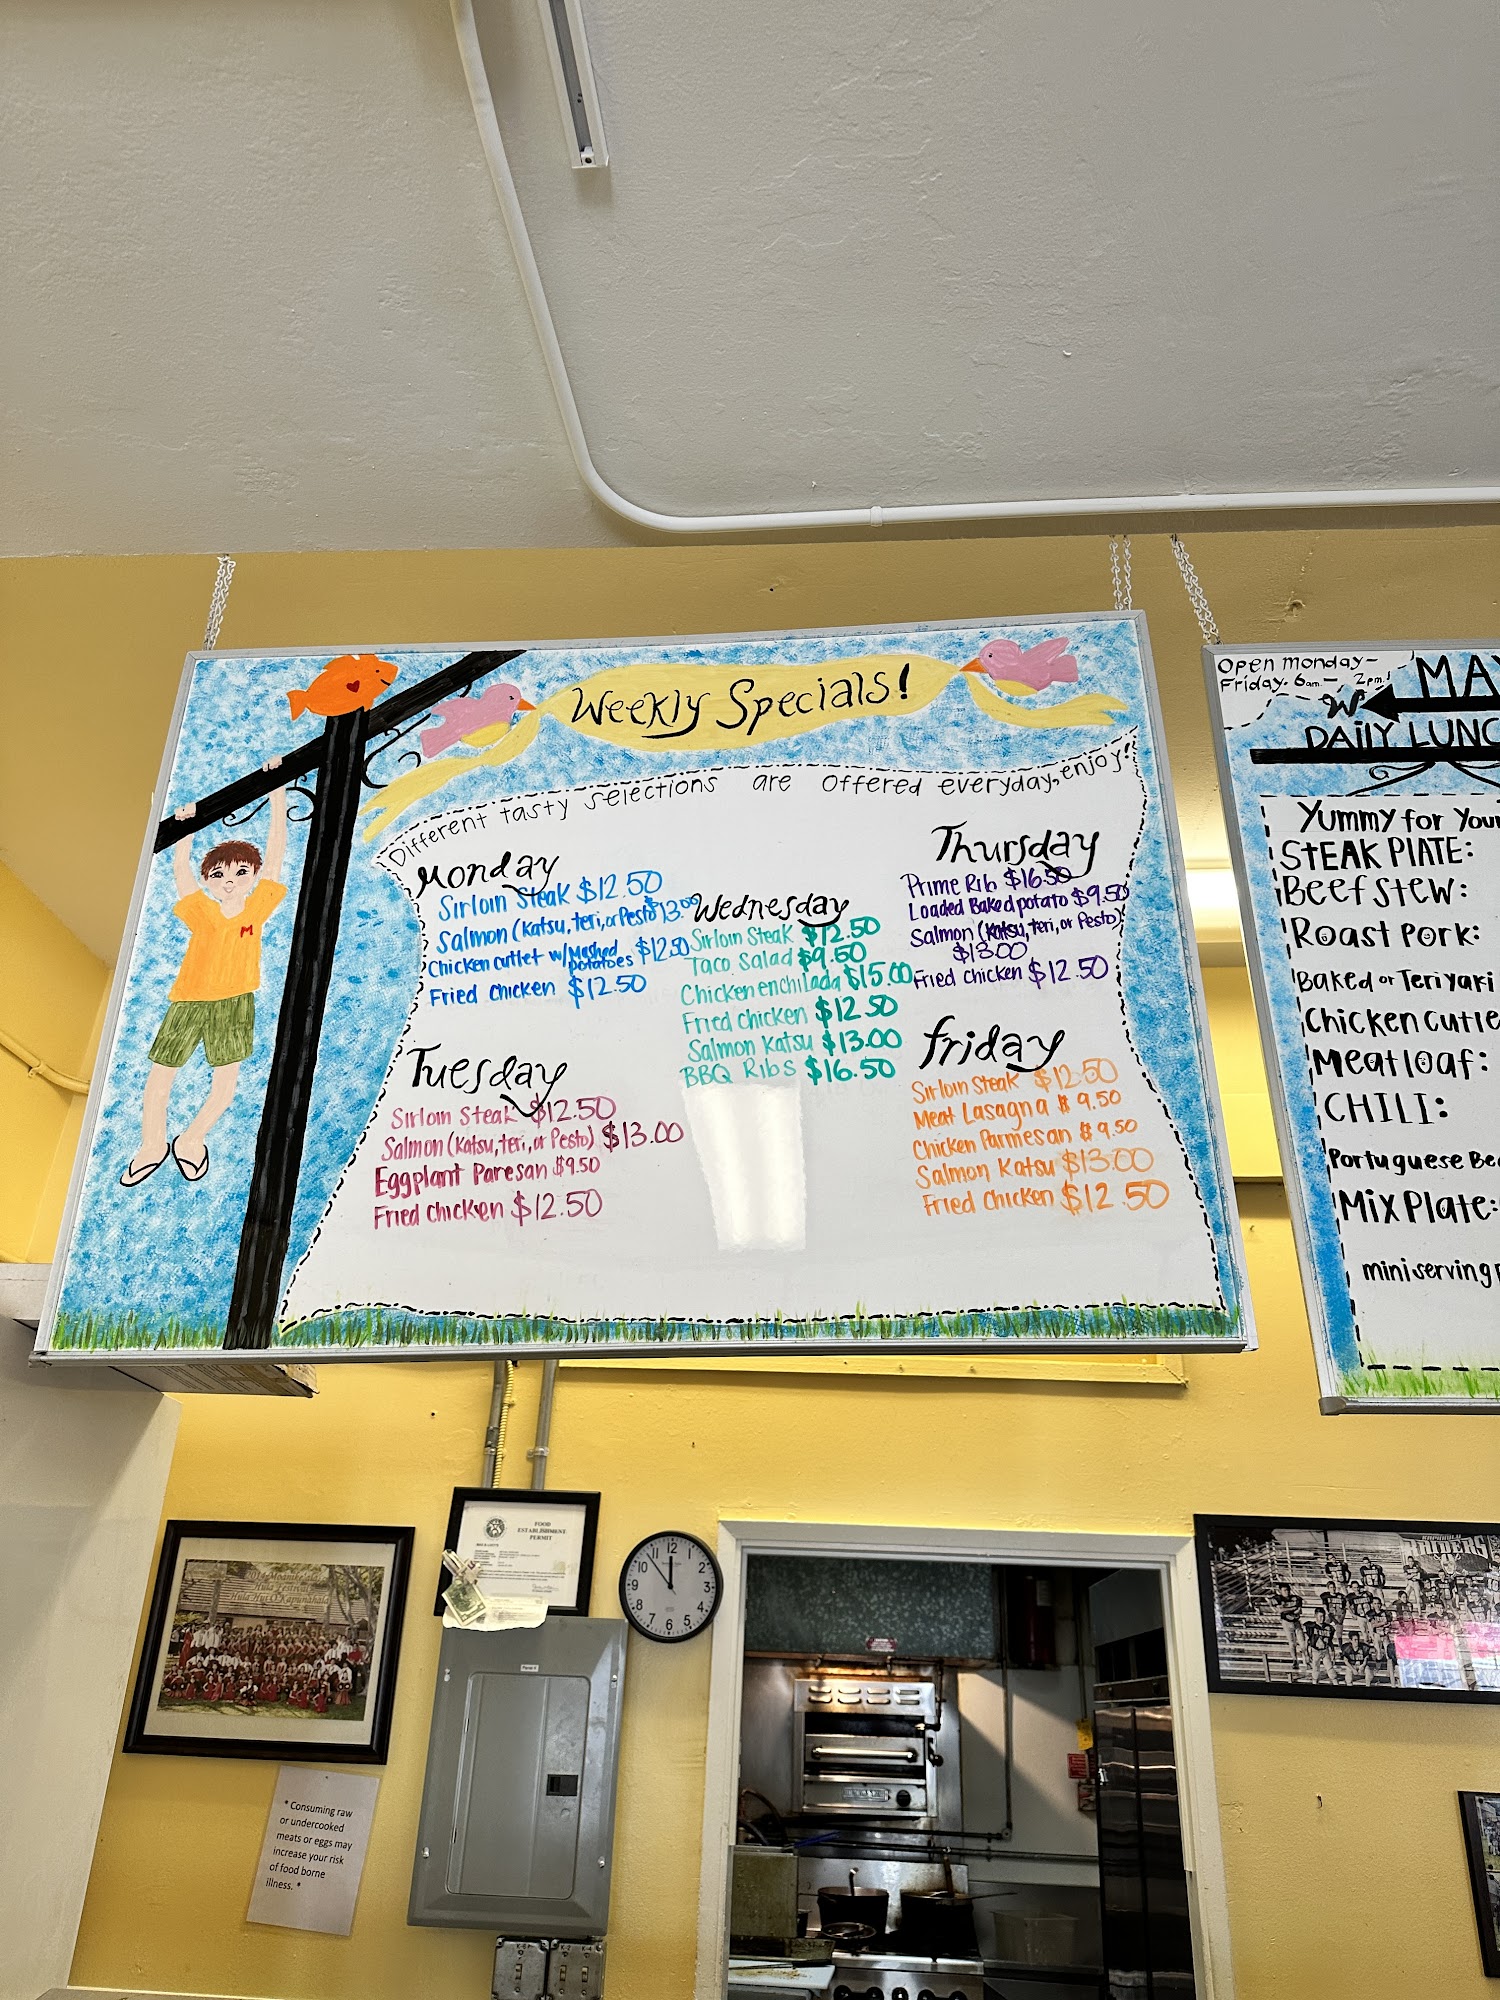 Weekly Specials!
Different tasty selections are offered everyday, enjoy!
Monday
Sirloin Steak $12.50
Salmon (Katsu, teri, or Pesto) $13.00
Chicken cutlet w/ Mashed potatoes $12.50
Fried chicken $12.50
Tuesday
Sirloin Steak $12.50
Salmon (Katsu, teri, or Pesto) $13.00
Eggplant Paresan $9.50
Fried chicken $12.50
Wednesday
Sirloin Steak $12.50
Taco Salad $9.50
Chicken enchilada $15.00
Fried chicken $12.50
Salmon Katsu $13.00
BBQ Ribs $16.50
Thursday
Prime Rib $16.50
Loaded Baked potato $9.50
Salmon (Katsu, teri, or Pesto)
$13.00
Fried chicken $12.50
friday
Sirloin Steak $12.50
Meat Lasagna $9.50
Chicken Parmesan $9.50
Salmon Katsu $13.00
Fried Chicken $12.50
M
Open Monday-
Friday. 6am.- 2pm.!
W
MA
DAILY LUNC
Yummy for You
STEAK PLATE:
Beef Stew:
Roast Pork:
Baked or Teriyaki
Chicken Cutle
Meatloaf:
CHILI:
Portuguese Be
Mix Plate:
mini serving
FOOD
ESTABLISHMENT
PERMIT
12
1
2
3
4
5
6
7
8
9
10
11
Hula Festival
Hula Hui O Kapunahala
RAIDERS
* Consuming raw
or undercooked
meats or eggs may
increase your risk
of food borne
illness. *